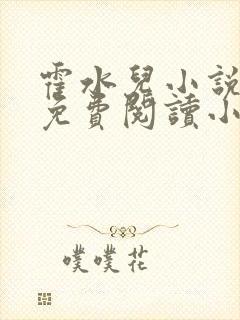 霍水兒小說
免費閱讀小
噗噗花